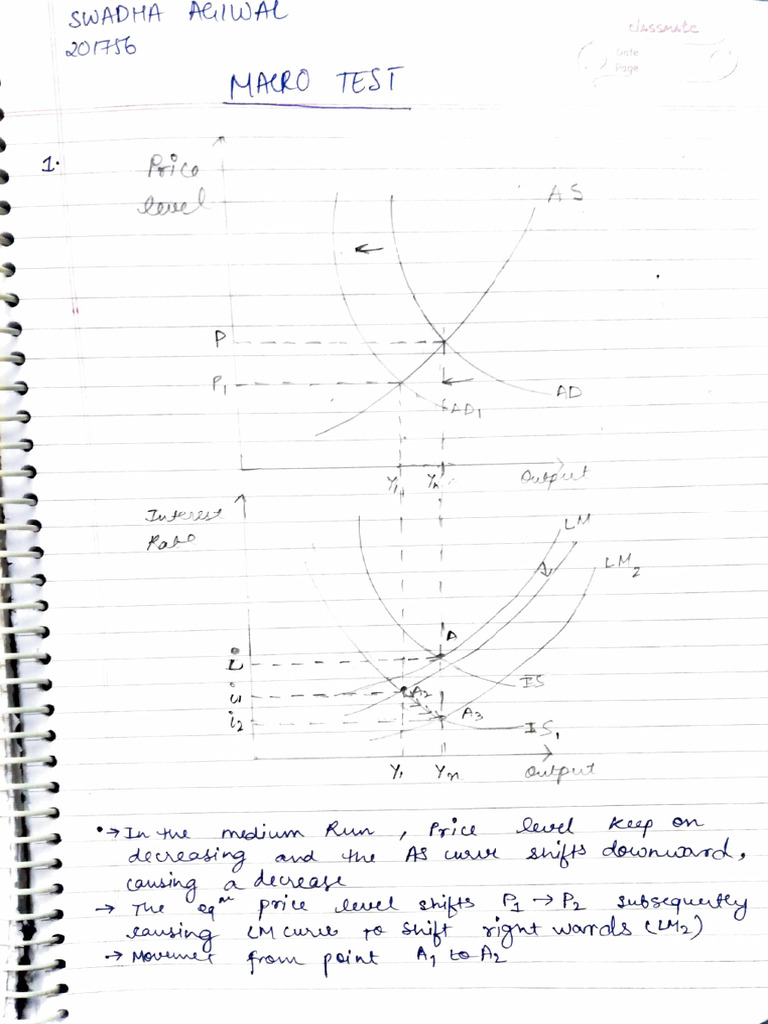 SWADHA AGIWAL
201756
classmate
Date
Page
MACRO TEST
1.
Price
level
AS
P
P1
AD1
AD
Y1
Yn
Output
Interest
Rate
LM
LM2
A
i
A2
i1
IS
i2
A3
IS1
Y1
Yn
Output
• → In the medium Run, Price level keep on
decreasing and the AS curve shifts downward,
causing a decrease
→ The eqm price level shifts P1 → P2 subsequently
causing LM curve to shift right wards (LM2)
→ Movement from point A1 to A2